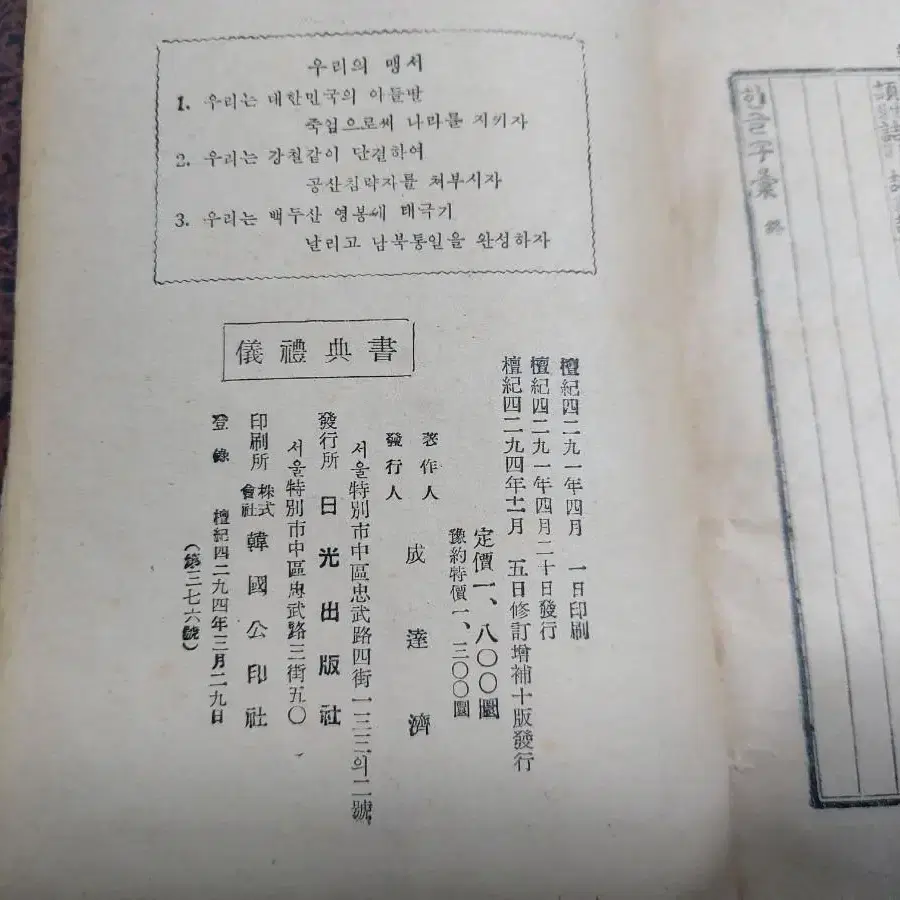 우리의 맹서
1. 우리는 대한민국의 아들딸
죽엄으로써 나라를 지키자
2. 우리는 강철같이 단결하여
공산침략자를 쳐부시자
3. 우리는 백두산 영봉에 태극기
날리고 남북통일을 완성하자
儀禮典書
檀紀四二九一年四月 一日印刷
檀紀四二九一年四月二十日發行
檀紀四二九四年十一月 五日修訂增補十版發行
定價一、八〇〇圜
豫約特價一、三〇〇圜
著作人
發行人
成達濟
서울特別市中區忠武路四街一三三의二號
發行所 日光出版社
서울特別市中區忠武路三街五〇
印刷所 株式會社 韓國公印社
登錄 檀紀四二九四年三月二九日
(第三七六號)
한글字彙 終